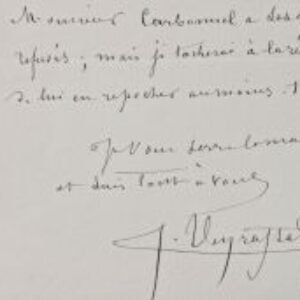 Monsieur Carbonnel a des
refusés ; mais je tacherai à la ré
de lui en repocher au moins
Je Vous serre la ma
et suis tout à vous
J. Veyrassa